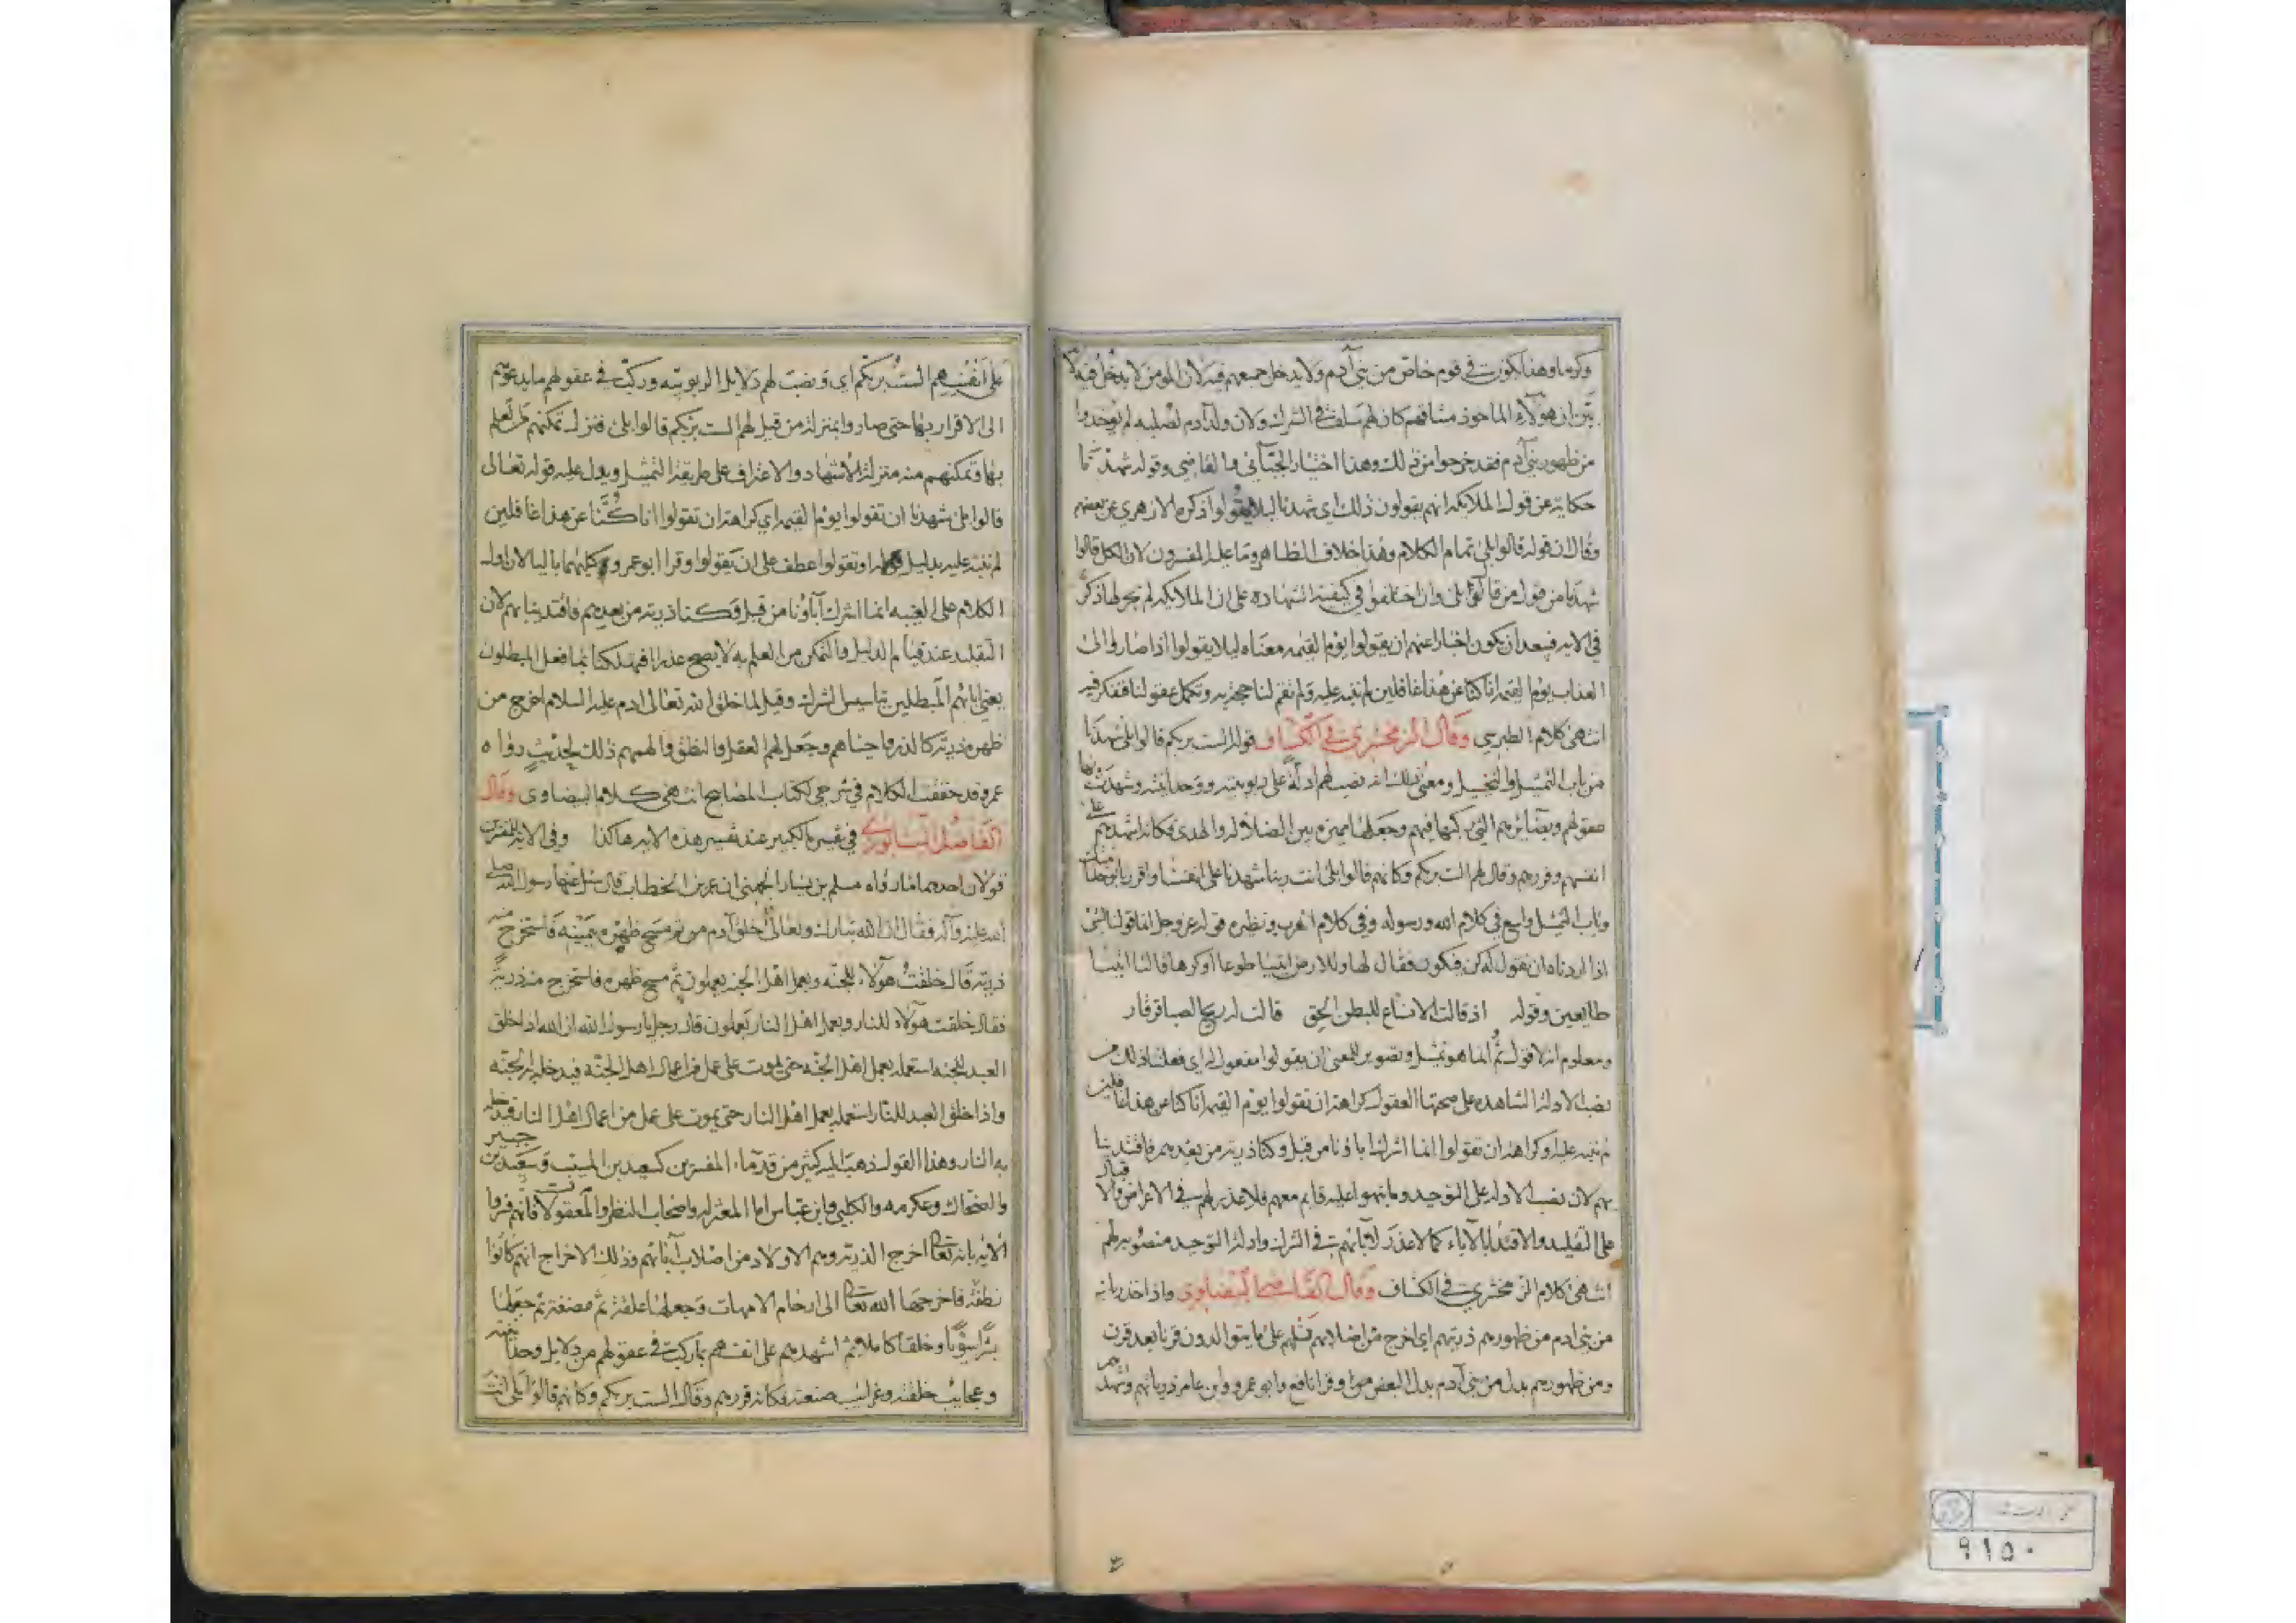 وكرما وهذا يكون في قوم خاص من بني آدم ولا يدخل جميعهم فيه لان المومن لا يدخل فيه لا
بين ان هولاء الماخوذ ميثاقهم كان لهم سلف في الشرك ولان ولد آدم لصلبه لم يوخذوا
من ظهور بني آدم فقد خرجوا من ذلك وهذا اختيار الجبائي والقاضي وقوله شهدنا
حكاية عن قول الملايكة انهم يقولون ذلك اي شهدنا ليلا يقولوا ذكره الازهري عن بعضهم
وقال ان قوله قالوا بلى تمام الكلام وهذا خلاف الظاهر وما عليه المفسرون لان الكل قالوا
شهدنا من قول من قالوا بلى وان اختلفوا في كيفية الشهادة على ان الملايكة لم يجر لها ذكر
في الايه فيبعد ان يكون اخبارا عنهم ان يقولوا يوم القيمه معناه ليلا يقولوا اذا صاروا الى
العذاب يوم القيمة انا كنا عن هذا غافلين لم ننبه عليه ولم تقم لنا حجة به وتكمل عقولنا فنفكر فيه
انتهى كلام الطبرسي وقال الزمخشري في الكشاف قوله الست بربكم قالوا بلى شهدنا
من باب التمثيل والتخييل ومعنى ذلك انه نصب لهم ادلة على ربوبيته ووحدانيته وشهدت بها
عقولهم وبصائرهم التي ركبها فيهم وجعلها مميزه بين الضلالة والهدى فكانه اشهدهم على
انفسهم وقررهم وقال لهم الست بربكم وكانهم قالوا بلى انت ربنا شهدنا على انفسنا واقررنا بوحدانيتك
وباب التمثيل واسع في كلام الله ورسوله وفي كلام العرب ونظيره قوله عز وجل انما قولنا لشئ
اذا اردناه ان نقول له كن فيكون فقال لها وللارض ائتيا طوعا او كرها قالتا اتينا
طايعين وقوله اذ قالت الانساع للبطن الحق قالت له ريح الصبا قرقار
ومعلوم انه لا قول ثم انما هو تمثيل وتصوير للمعنى ان يقولوا مفعول له اي فعلنا ذلك من
نصب الادلة الشاهده على صحتها العقول كراهة ان تقولوا يوم القيمة انا كنا عن هذا غافلين
لم ننبه عليه او كراهة ان تقولوا انما اشرك اباؤنا من قبل وكنا ذرية من بعدهم فاقتدينا
بهم لان نصب الادله على التوحيد وما نبهوا عليه قايم معهم فلا عذر لهم في الاعراض والاقبال
على التقليد والاقتدا بالآباء كما لا عذر لآبائهم في الشرك وادلة التوحيد منصوبه لهم
انتهى كلام الزمخشري في الكشاف وقال القاضي البيضاوي واذ اخذ ربك
من بني ادم من ظهورهم ذريتهم اي اخرج من اصلابهم نسلهم على ما يتوالدون قرنا بعد قرن
ومن ظهورهم بدل من بني آدم بدل البعض وقرا نافع وابو عمرو وابن عامر ذرياتهم واشهدهم
على انفسهم الست بربكم اي ونصب لهم دلايل الربوبيه وركب في عقولهم ما يدعوهم
الى الاقرار بها حتى صاروا بمنزلة من قيل لهم الست بربكم قالوا بلى فنزل تمكنهم من العلم
بها وتمكنهم منه منزلة الاشهاد والاعتراف على طريقة التمثيل ويدل عليه قوله تعالى
قالوا بلى شهدنا ان تقولوا يوم القيمه اي كراهة ان تقولوا انا كنا عن هذا غافلين
لم ننبه عليه بدليل او تقولوا عطف على ان يقولوا وقرا ابو عمرو كليهما باليا لان اول
الكلام على الغيبه انما اشرك آباؤنا من قبل وكنا ذرية من بعدهم فاقتدينا بهم لان
التقليد عند قيام الدليل والتمكن من العلم به لا يصح عذرا افتهلكنا بما فعل المبطلون
يعني ابائهم المبطلين بتاسيس الشرك وقيل لما خلق الله تعالى ادم عليه السلام اخرج من
ظهره ذرية كالذر واحياهم وجعل لهم العقل والنطق والهمهم ذلك لحديث رواه
عمر وقد حققت الكلام في شرحي لكتاب المصابيح انتهى كلام البيضاوى وقال
الفاضل النيسابوري في تفسيره الكبير عند تفسير هذه الايه هاكذا وفي الايه للمفسرين
قولان احدهما ما رواه مسلم بن يسار الجهني ان عمر بن الخطاب قال سئل عنها رسول الله صلى
الله عليه وآله فقال ان الله تبارك وتعالى خلق آدم ثم مسح ظهره بيمينه فاستخرج منه
ذرية قال خلقت هولاء للجنه وبعمل اهل الجنه يعملون ثم مسح ظهره فاستخرج منه ذرية
فقال خلقت هولاء للنار وبعمل اهل النار يعملون قال رجل يا رسول الله ان الله اذا خلق
العبد للجنه استعمله بعمل اهل الجنه حتى يموت على عمل من اعمال اهل الجنه فيدخله به الجنه
واذا خلق العبد للنار استعمله بعمل اهل النار حتى يموت على عمل من اعمال اهل النار فيدخله
به النار وهذا القول ذهب اليه كثير من قدماء المفسرين كسعيد بن المسيب وسعيد بن جبير
والضحاك وعكرمه والكلبي وابن عباس اما المعتزله واصحاب النظر والمعقولات فانهم فسروا
الايه بانه تعالى اخرج الذريه وهم الاولاد من اصلاب آبائهم وذلك الاخراج انهم كانوا
نطفة فاخرجها الله تعالى الى ارحام الامهات وجعلها علقة ثم مضغة ثم جعلها
بشرا سويا وخلقا كاملا ثم اشهدهم على انفسهم بما ركب في عقولهم من دلايل وحدانيته
وعجايب خلقته وغرائب صنعته فكانه قررهم وقال الست بربكم وكانهم قالوا بلى انت
٩١٥٠